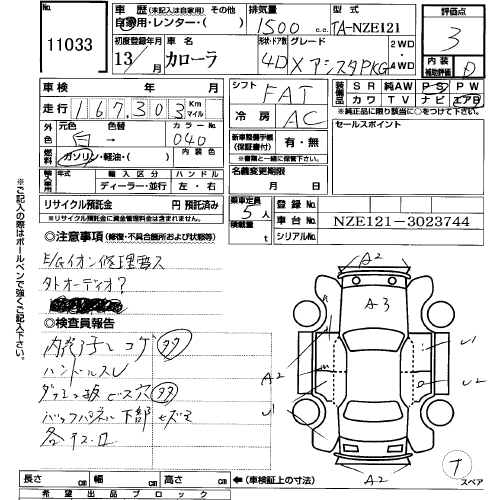 No.
11033
車歴 (未記入は自家用) その他
自家用・レンター・( )
排気量
1500 c.c.
型式
TA-NZE121
評価点
3
初度登録年月
13/
車名
カローラ
形状・ドア数
4D
グレード
XアシスタPKG
2WD
4WD
内装
補助評価
D
車検 年 月
走行 167,303 Km
マイル
シフト
FAT
装備品
SR 純AW PS PW
カワ TV ナビ エアB
※純正品に限り該当に○をつけて下さい。
外色
元色
白→
色替
カラーNo.
040
冷房
AC
セールスポイント
燃料
ガソリン・軽油・( )
内装色
新車整備手帳
(保証書付)
有・無
※書類と一緒に保管して下さい。
輸入車用
年式
輸入区分
ディーラー・並行
ハンドル
左・右
名義変更期限
月 日
リサイクル預託金 円 預託済み
※リサイクル預託金に資金管理料金は含まれません。
乗車定員
5人
積載量
t
登録No.
車台No.
NZE121-3023744
シリアルNo.
◎注意事項 (修復・不具合箇所および状態等)
E/Gイオン修理要ス
タトオーディオ?
※ご記入の際はボールペンで強くご記入下さい。
◎検査員報告
内張スレコゲ
ハンドルスレ
ダッシュ板ビス穴
バックパネル下部
A2
A-3
A2
A2
U1
U1
U2
T
スペア
長さ cm
幅 cm
高さ cm
(車検証上の寸法)
希望出品ブロック